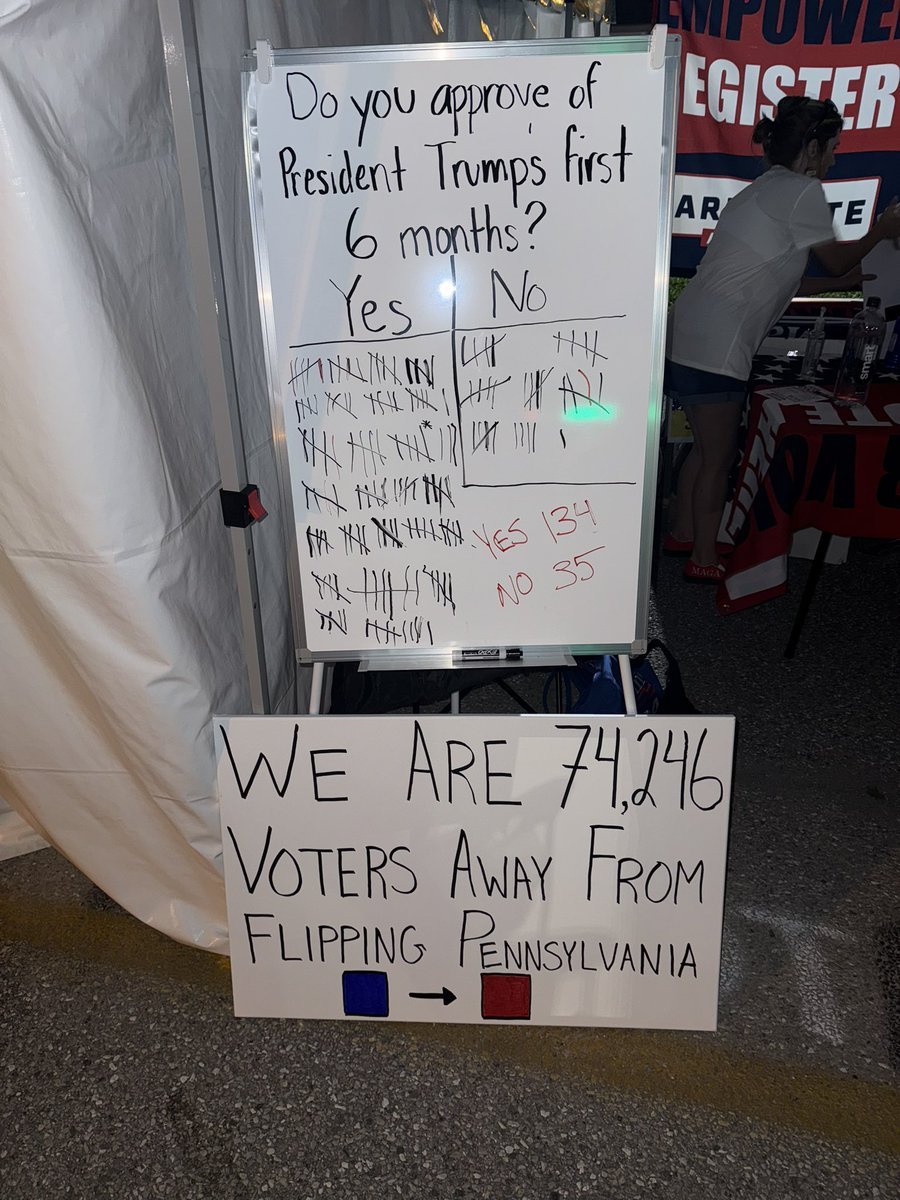 Do you approve of
President Trump's first
6 months?
Yes No
YES 134
NO 35
WE ARE 74,246
VOTERS AWAY FROM
FLIPPING PENNSYLVANIA
EMPOWE
EGISTER
AR TE
smart
VOTE
MAGA
EXPO